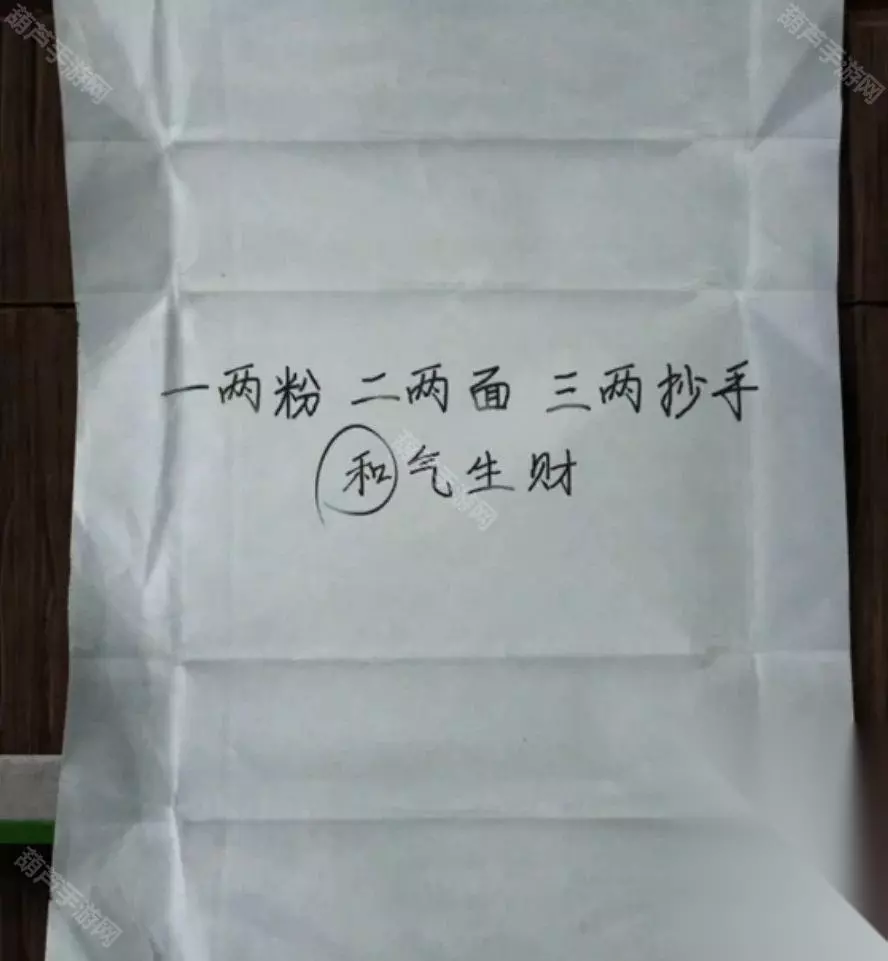 葫芦手游网
葫芦手游网
一两粉 二两面 三两抄手
和气生财
葫芦手游网
葫芦手游网